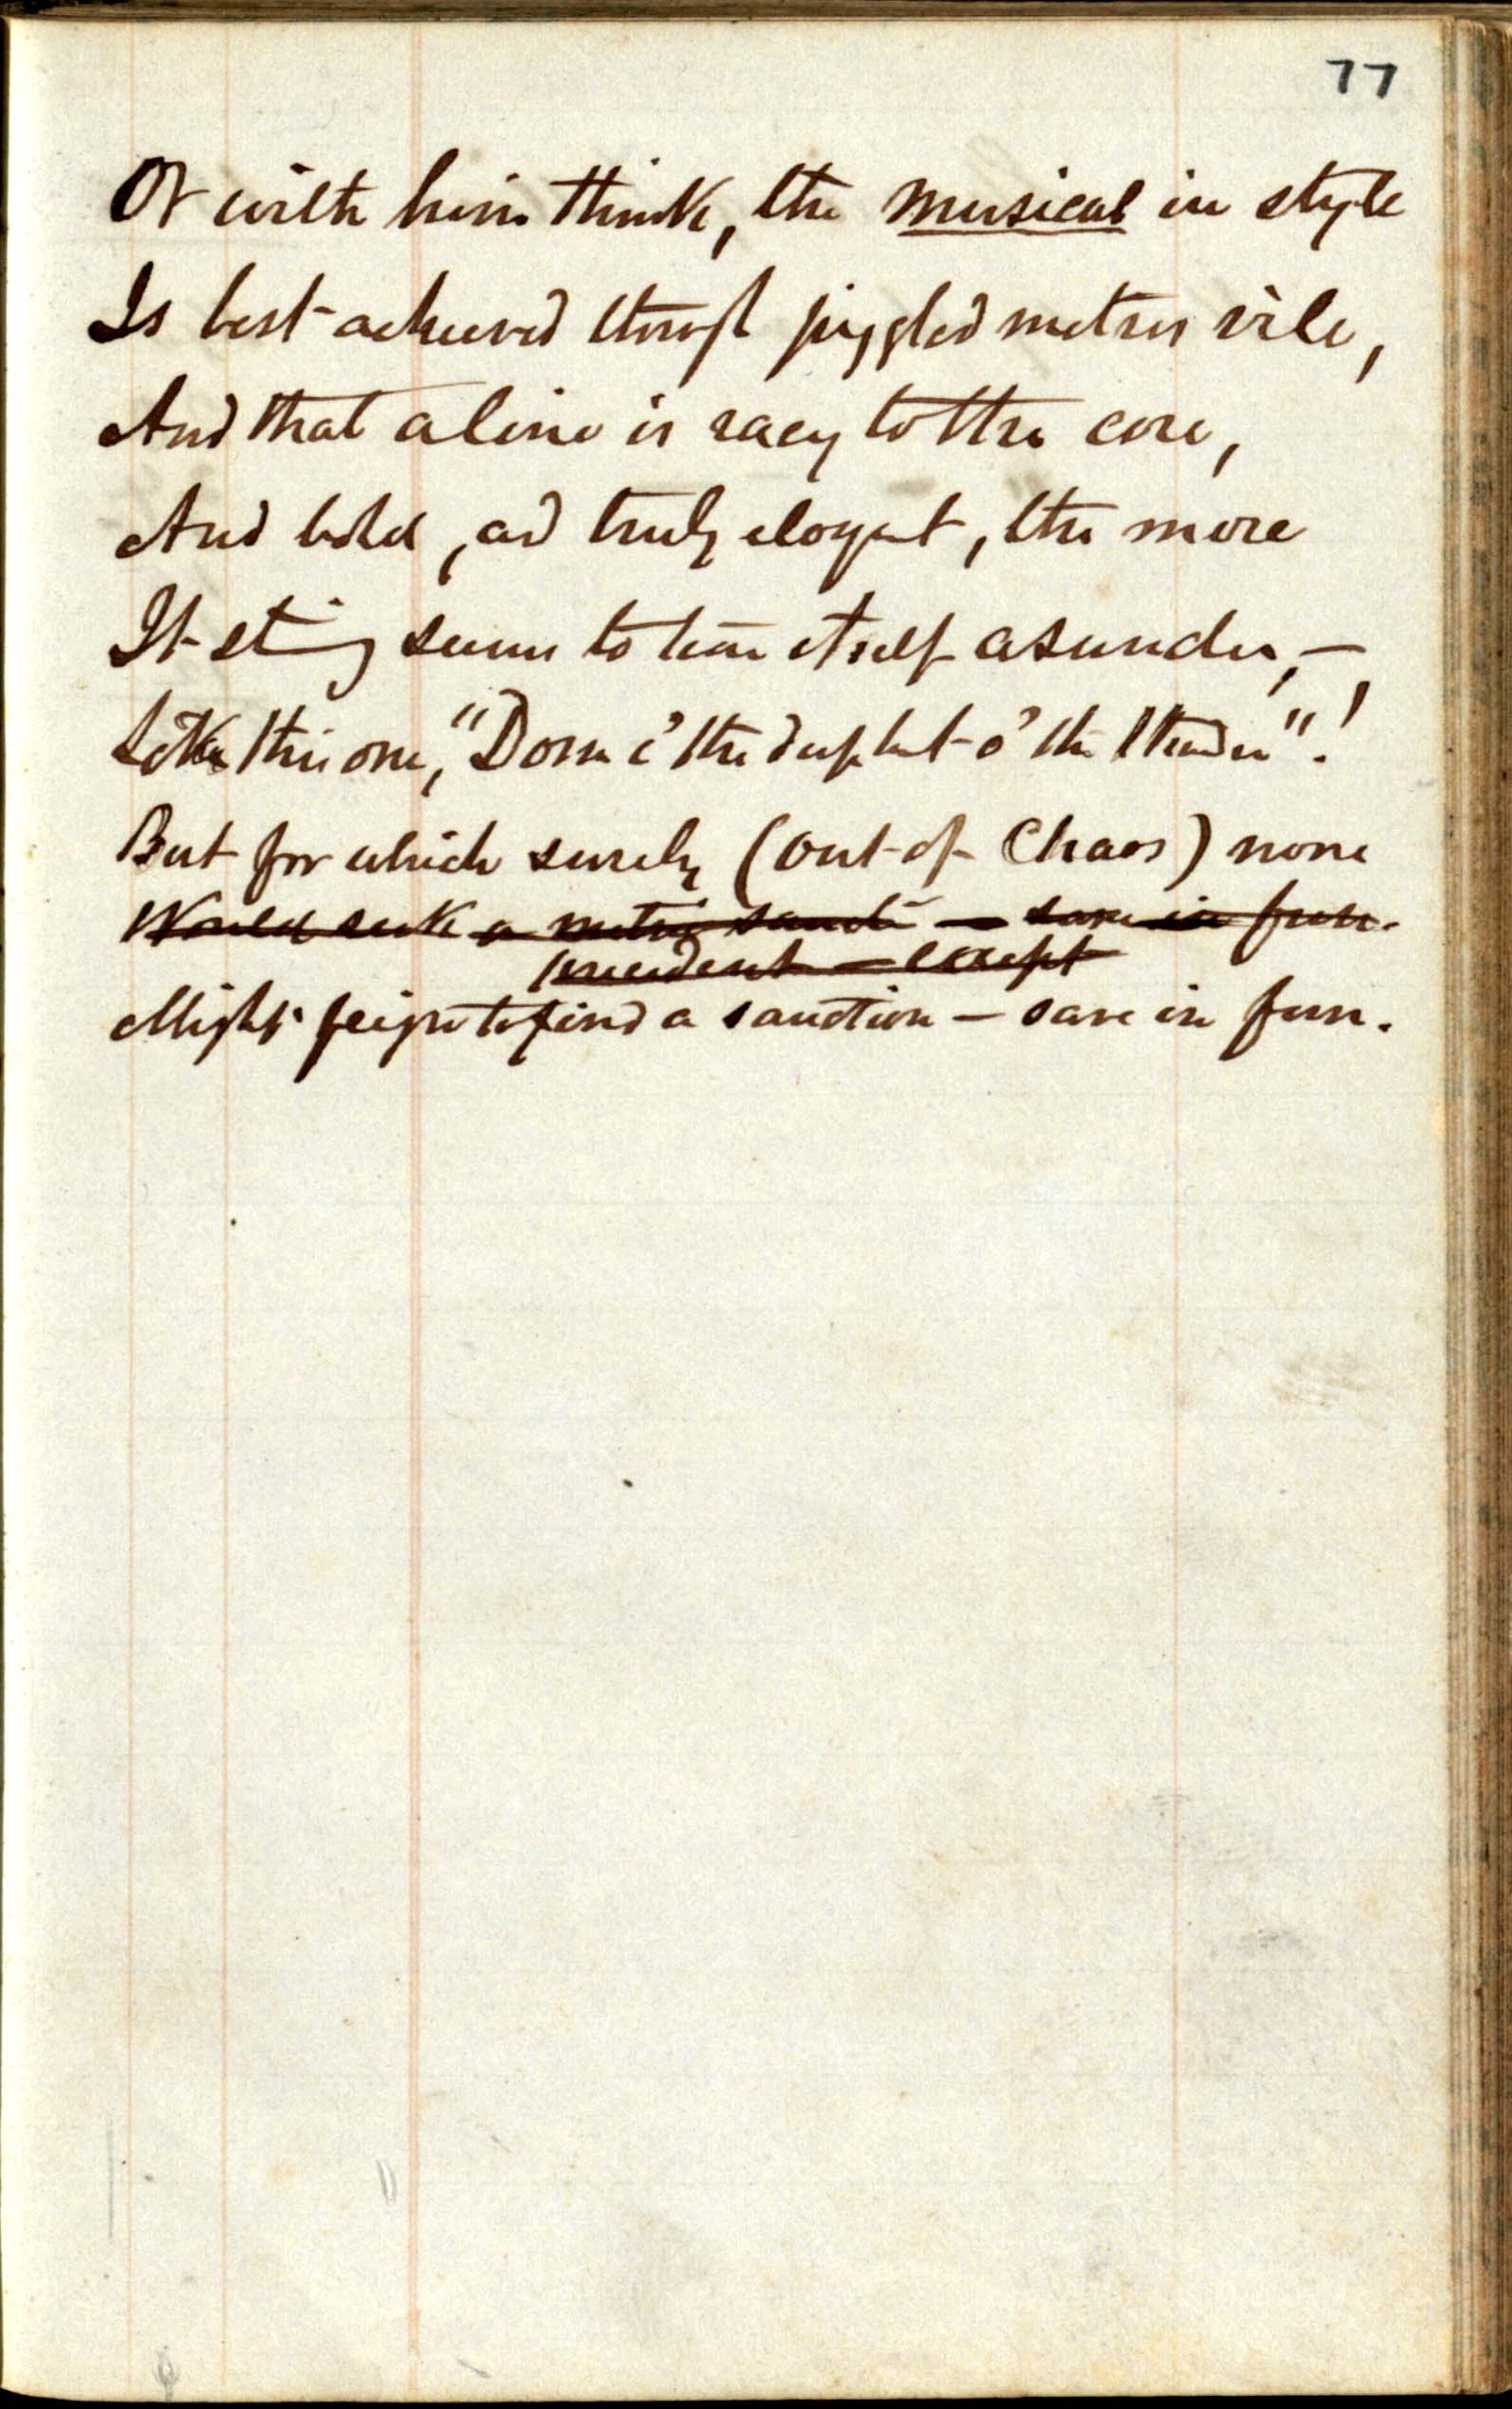 77
Or with him think, the musical in style
Is best achieved through juggled metres vile,
And that a line is racy to the core,
And bold, and truly eloquent, the more
It string seems to tear itself asunder,—
Like this one, "Down i' the deep heart o' the thunder"!
But for which surely (out of Chaos) none
Would seek a metric sanction — save in fun.
precedent — except
Might feign to find a sanction — save in fun.